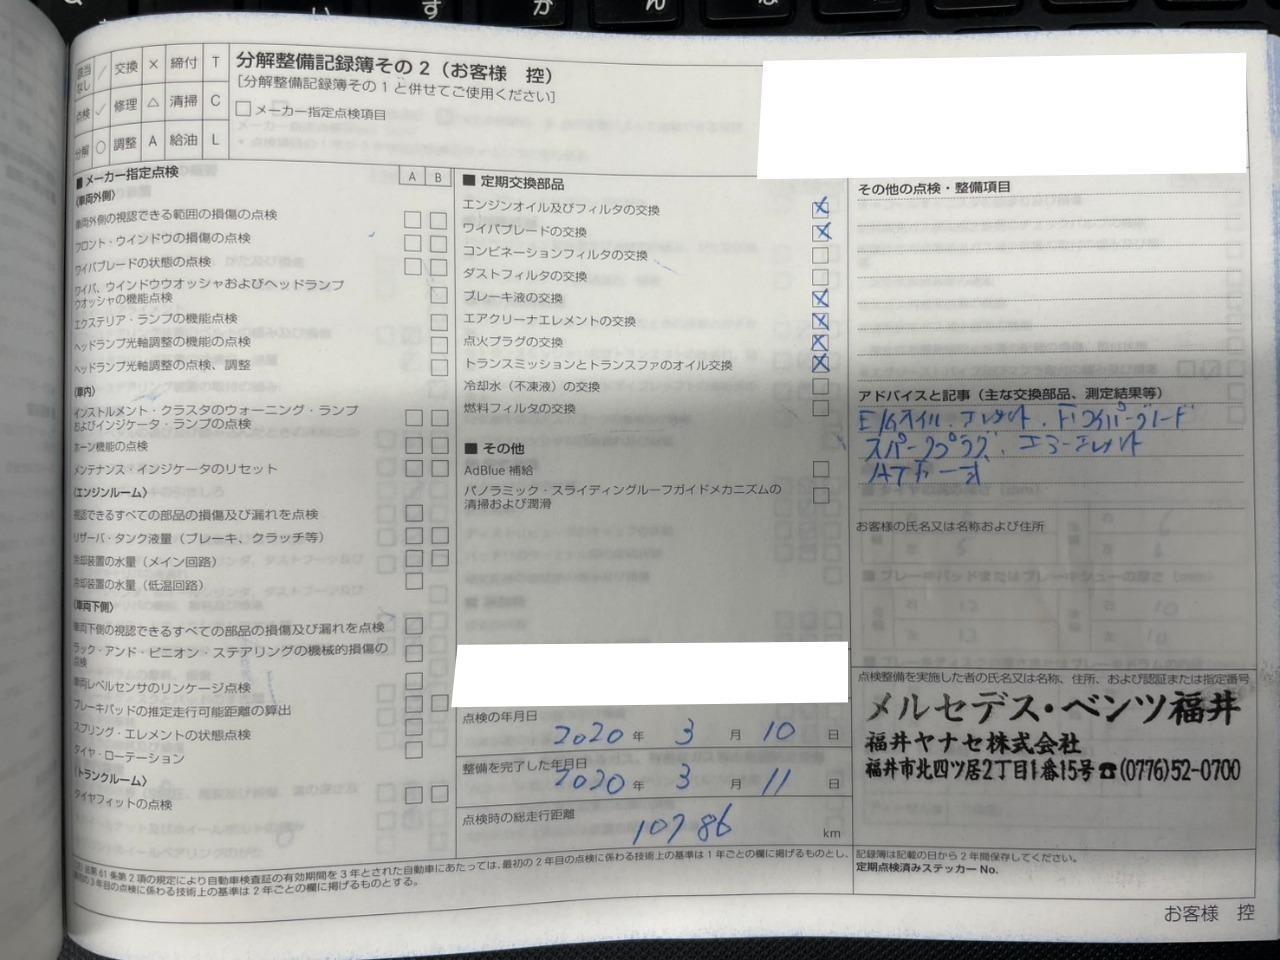 該当なし ／ 交換 × 締付 T
点検 ✓ 修理 △ 清掃 C
分解 ○ 調整 A 給油 L
分解整備記録簿その2（お客様　控）
［分解整備記録簿その1と併せてご使用ください］
□メーカー指定点検項目
■ メーカー指定点検
A B
〈車両外側〉
車両外側の視認できる範囲の損傷の点検
フロント・ウインドウの損傷の点検
ワイパブレードの状態の点検
ワイパ、ウインドウウオッシャおよびヘッドランプ
ウオッシャの機能点検
エクステリア・ランプの機能点検
ヘッドランプ光軸調整の機能の点検
ヘッドランプ光軸の点検、調整
〈車内〉
インストルメント・クラスタのウォーニング・ランプ
およびインジケータ・ランプの点検
ホーン機能の点検
メンテナンス・インジケータのリセット
〈エンジンルーム〉
視認できるすべての部品の損傷及び漏れを点検
リザーバ・タンク液量（ブレーキ、クラッチ等）
冷却装置の水量（メイン回路）
冷却装置の水量（低温回路）
〈車両下側〉
車両下側の視認できるすべての部品の損傷及び漏れを点検
ラック・アンド・ピニオン・ステアリングの機械的損傷の
点検
車両レベルセンサのリンケージ点検
ブレーキパッドの推定走行可能距離の算出
スプリング・エレメントの状態点検
タイヤ・ローテーション
〈トランクルーム〉
タイヤフィットの点検
■ 定期交換部品
エンジンオイル及びフィルタの交換
ワイパブレードの交換
コンビネーションフィルタの交換
ダストフィルタの交換
ブレーキ液の交換
エアクリーナエレメントの交換
点火プラグの交換
トランスミッションとトランスファのオイル交換
冷却水（不凍液）の交換
燃料フィルタの交換
■ その他
AdBlue 補給
パノラミック・スライディングルーフガイドメカニズムの
清掃および潤滑
点検の年月日
2020 年 3 月 10 日
整備を完了した年月日
2020 年 3 月 11 日
点検時の総走行距離
10786 km
その他の点検・整備項目
アドバイスと記事（主な交換部品、測定結果等）
E/Gオイル．エレメント．Fワイパーブレード
スパークプラグ．エアーエレメント
ATF一式
お客様の氏名又は名称および住所
点検整備を実施した者の氏名又は名称、住所、および認証または指定番号
メルセデス・ベンツ福井
福井ヤナセ株式会社
福井市北四ツ居2丁目1番15号☎(0776)52-0700
第61条第2項の規定により自動車検査証の有効期間を3年とされた自動車にあたっては、最初の2年目の点検に係わる技術上の基準は1年ごとの欄に掲げるものとし、
の3年目の点検に係わる技術上の基準は2年ごとの欄に掲げるものとする。
記録簿は記載の日から2年間保存してください。
定期点検済みステッカー No.
お客様　控